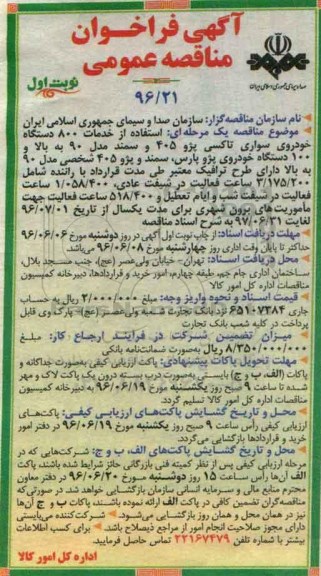 آگهی فراخوان
مناقصه عمومی
نوبت اول
صدا و سیمای جمهوری اسلامی ایران
۹۶/۲۱
نام سازمان مناقصه‌گزار: سازمان صدا و سیمای جمهوری اسلامی ایران
موضوع مناقصه یک مرحله‌ای: استفاده از خدمات ۸۰۰ دستگاه
خودروی سواری تاکسی پژو ۴۰۵ و سمند مدل ۹۰ به بالا و
۱۰۰ دستگاه خودروی پژو پارس، سمند و پژو ۴۰۵ شخصی مدل ۹۰
به بالا دارای طرح ترافیک معتبر طی مدت قرارداد با راننده شامل
۳/۱۷۵/۲۰۰ ساعت فعالیت در شیفت عادی، ۱/۰۵۸/۴۰۰ ساعت
فعالیت در شیفت شب و ایام تعطیل و ۵۱۸/۴۰۰ ساعت فعالیت جهت
ماموریت‌های برون شهری برای مدت یکسال از تاریخ ۹۶/۰۷/۰۱
لغایت ۹۷/۰۶/۳۱ به شرح اسناد مناقصه
مهلت دریافت اسناد: از چاپ نوبت اول آگهی در روز دوشنبه مورخ ۹۶/۰۶/۰۶
حداکثر تا پایان وقت اداری روز چهارشنبه مورخ ۹۶/۰۶/۰۸ می‌باشد.
محل دریافت اسناد: تهران- خیابان ولی‌عصر (عج)، جنب مسجد بلال،
ساختمان اداری جام جم، طبقه چهارم، امور خرید و قراردادها، دبیرخانه کمیسیون
مناقصات اداره کل امور کالا
قیمت اسناد و نحوه واریز وجه: مبلغ ۲/۰۰۰/۰۰۰ ریال به حساب
۶۵۱۰۷۳۸۴ نزد بانک تجارت شعبه ولی‌عصر (عج)- پارک‌وی قابل
پرداخت در کلیه شعب بانک تجارت
میزان تضمین شرکت در فرآیند ارجاع کار: مبلغ
۸/۳۵۰/۰۰۰/۰۰۰ ریال به‌صورت ضمانت‌نامه بانکی
مهلت تحویل پاکات پیشنهادی: پاکت ارزیابی کیفی به‌صورت جداگانه و
پاکات (الف، ب و ج) بایستی به‌صورت درب بسته درون یک پاکت لاک و مهر
شده تا ساعت ۹ صبح روز یکشنبه مورخ ۹۶/۰۶/۱۹ به دبیرخانه کمیسیون
مناقصات اداره کل امور کالا تسلیم گردد.
محل و تاریخ گشایش پاکت‌های ارزیابی کیفی: پاکت‌های
ارزیابی کیفی رأس ساعت ۹ صبح روز یکشنبه مورخ ۹۶/۰۶/۱۹ در دفتر امور
خرید و قراردادها بازگشایی می‌گردد.
محل و تاریخ گشایش پاکت‌های الف، ب و ج: شرکت‌هایی که در
مرحله ارزیابی کیفی پس از نظر کمیته فنی بازرگانی حائز شرایط شده باشند، پاکت
الف آن‌ها رأس ساعت ۱۵ روز دوشنبه مورخ ۹۶/۰۶/۲۰ در دفتر معاون
محترم منابع مالی و سرمایه انسانی سازمان بازگشایی خواهد شد. در صورتی‌که
مناقصه‌گران تضمین کافی در پاکت الف ارائه نموده باشند، پاکات ب و ج آن‌ها
نیز در همان محل و همان روز بازگشایی می‌شود. شرکت‌کننده می‌بایستی
دارای مجوز صلاحیت انجام امور از مراجع ذیصلاح باشد. برای کسب اطلاعات
بیشتر با شماره تلفن ۲۲۱۶۷۴۷۹ تماس حاصل فرمایید.
اداره کل امور کالا